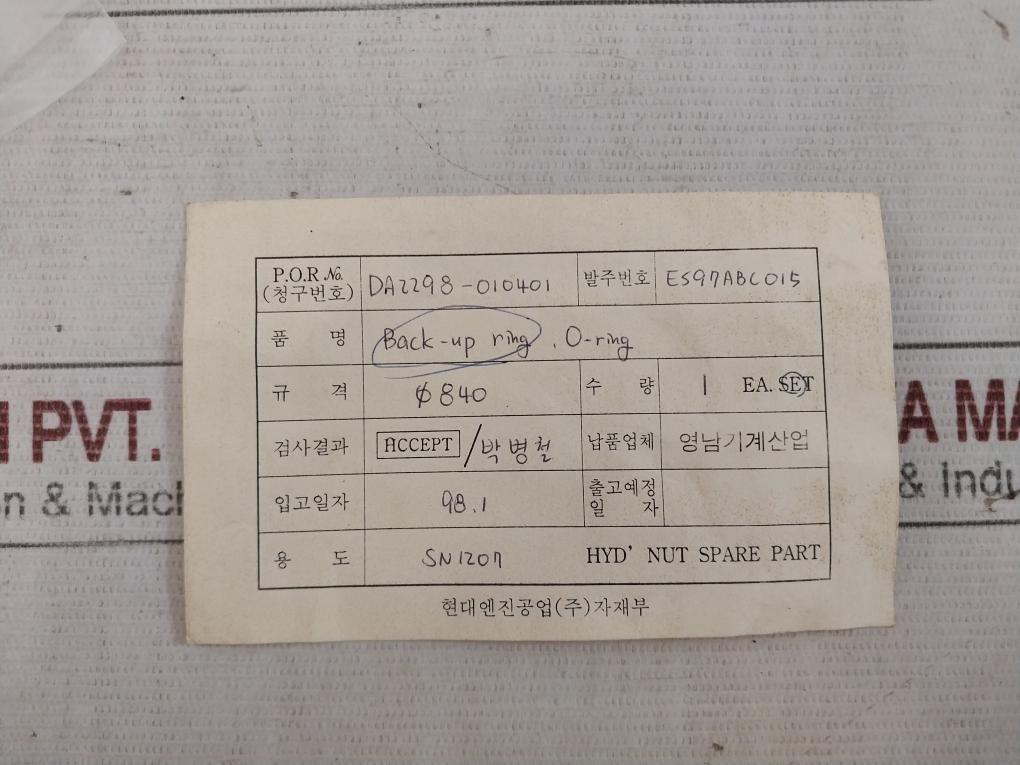 P.O.R.№. DA2298-010401 발주번호 ES97ABC015
(청구번호)
품 명 Back-up ring . O-ring
규 격 ϕ840 수 량 1 EA. SET
검사결과 ACCEPT / 박병철 납품업체 영남기계산업
입고일자 98.1 출고예정
일 자
용 도 SN1207 HYD' NUT SPARE PART
현대엔진공업(주)자재부
PVT.
A MA
n & Mach
& Indu